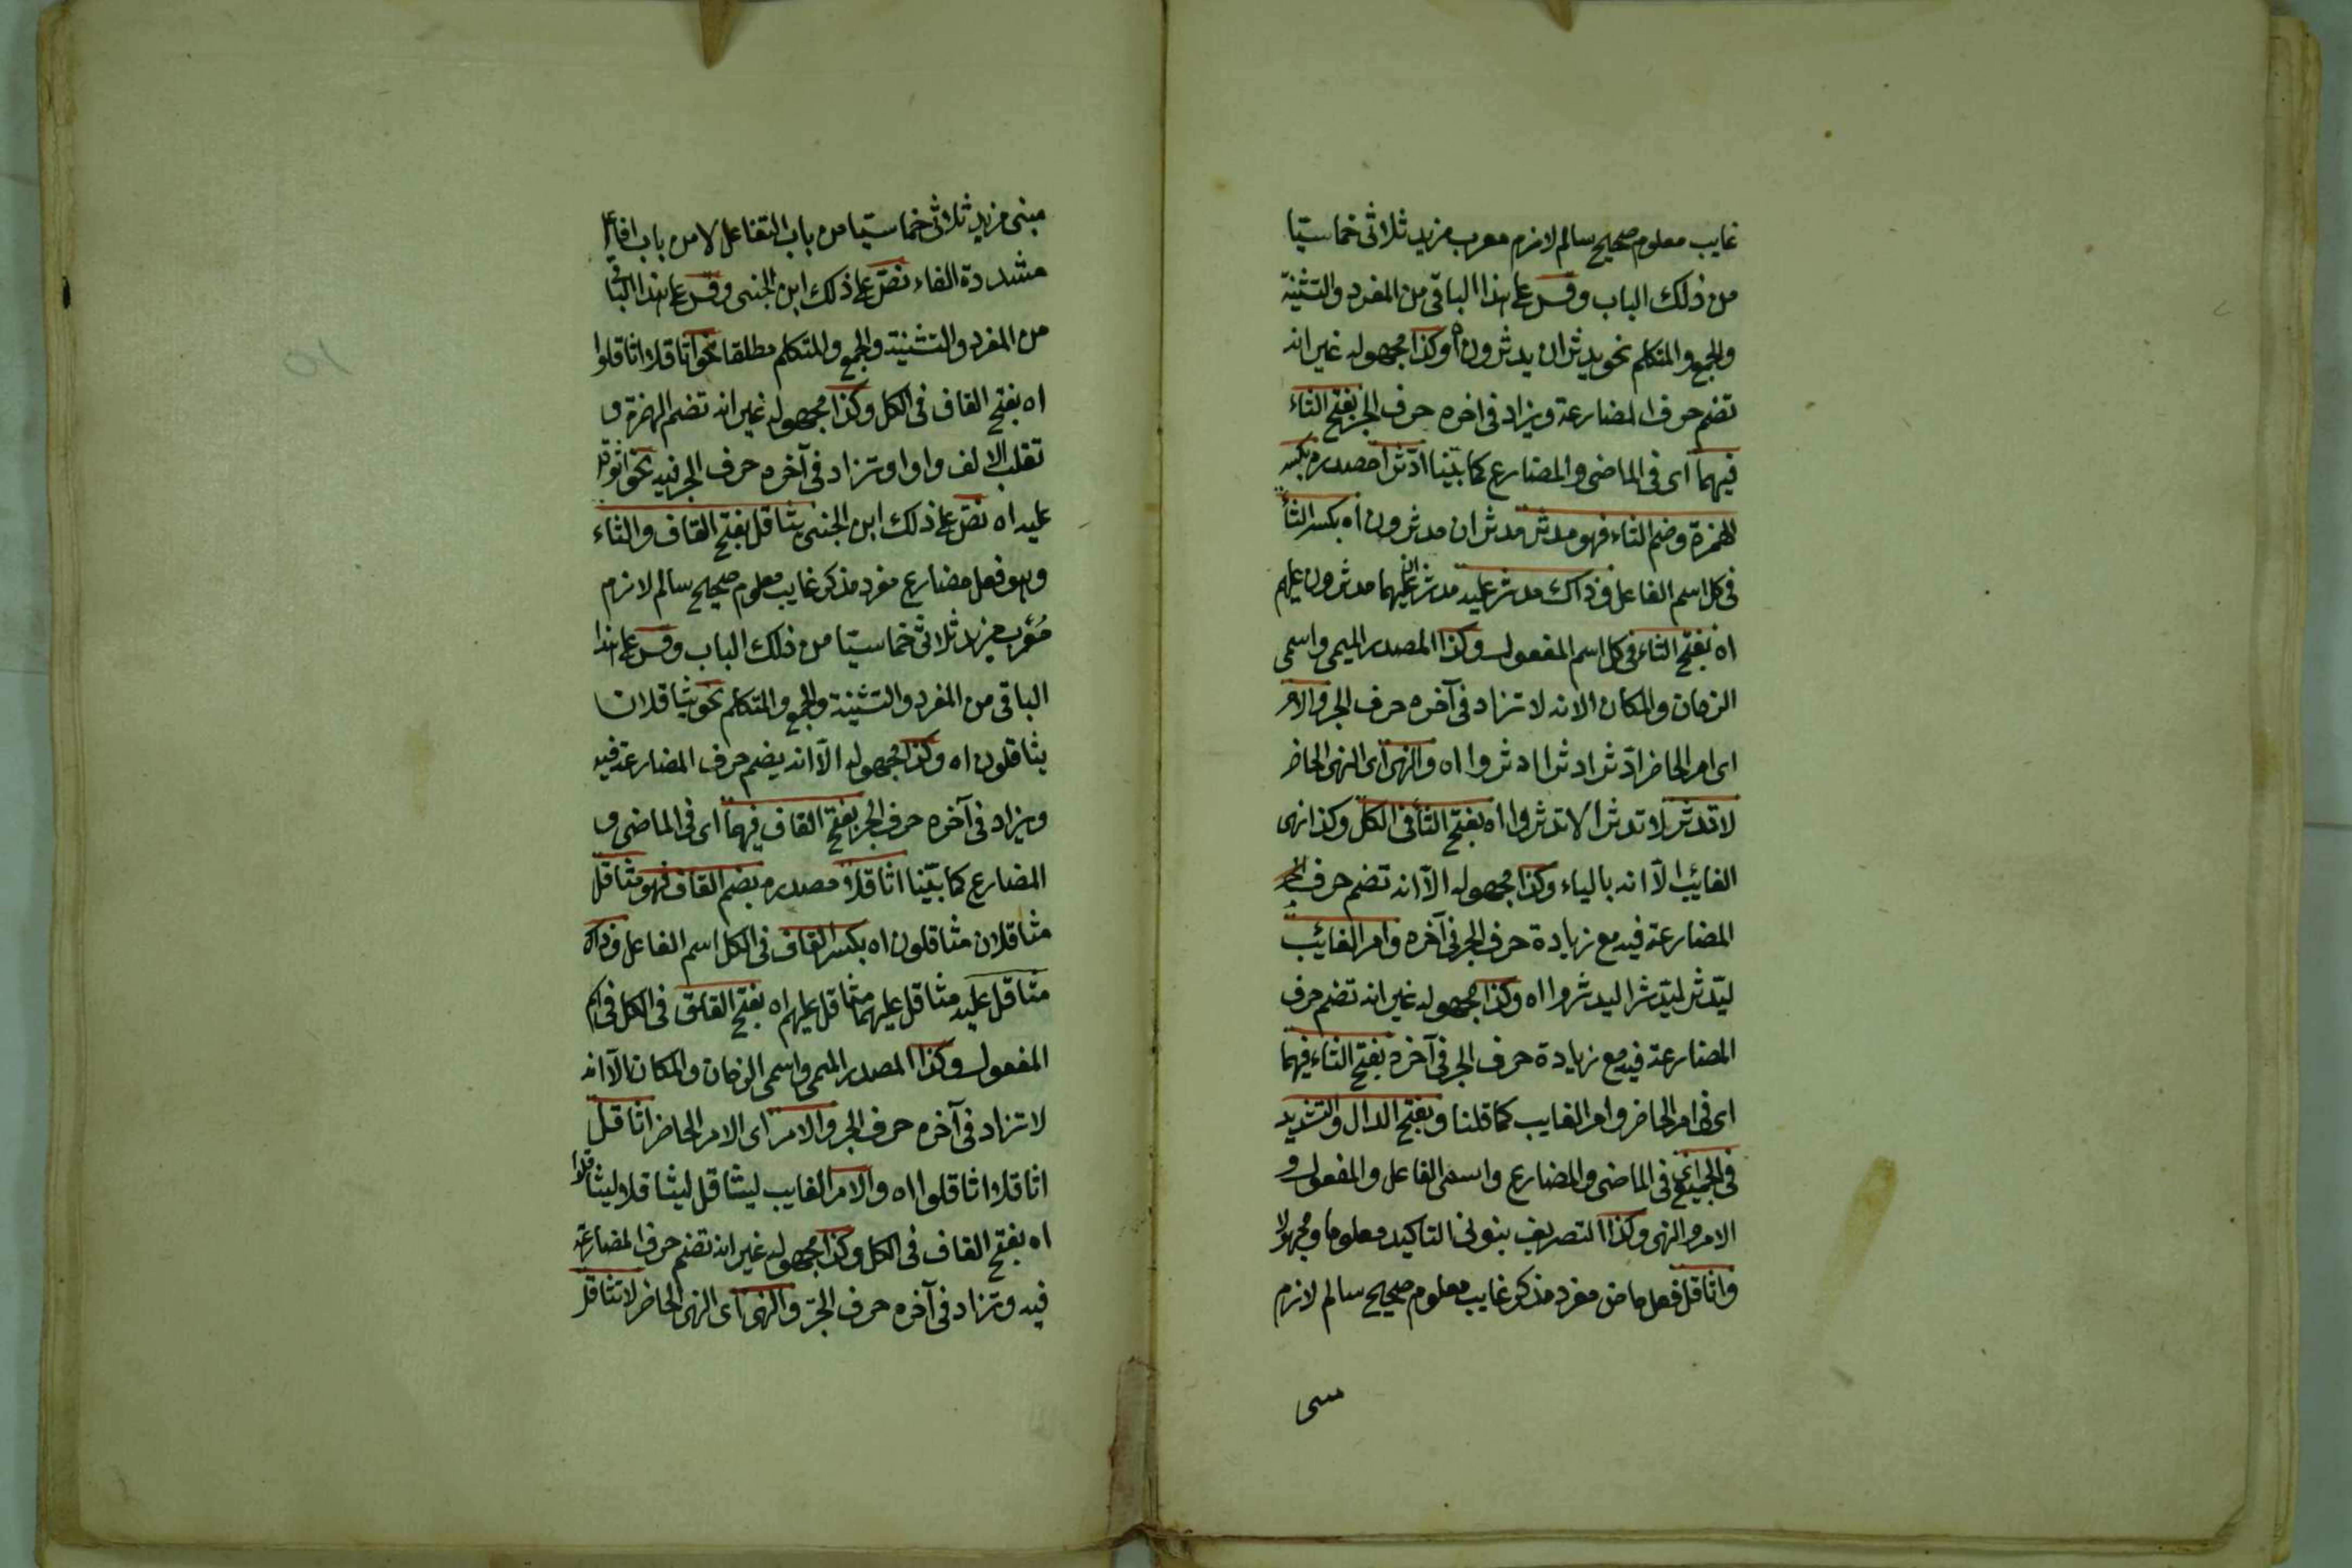 غايب معلوم صحيح سالم لازم معرب مزيد ثلاثى خماسيّا
من ذلك الباب وقس على هذا الباقى من المفرد والتثنية
والجمع والمتكلم نحو يدثران يدثرون اه وكذا مجهوله غير انه
تضم حرف المضارعة ويزاد فى اخره حرف الجر بفتح الثاء
فيهما اى فى الماضى والمضارع كما بيّنا ادّثرا مصدره بكسر
الهمزة وضم الثاء فهو مدثر مدثران مدثرون اه بكسر الثاء
فى كل اسم الفاعل وذاك مدثر عليه مدثران عليهما مدثرون عليهم
اه بفتح الثاء فى كل اسم المفعول وكذا المصدر الميمى واسمى
الزمان والمكان الا انه لا تزاد فى آخره حرف الجر والامر
اى امر الحاضر ادّثر ادثرا ادثروا اه والنهى اى النهى الحاضر
لا تدثر لا تدثرا لا تدثروا اه بفتح الثاء فى الكل وكذا نهى
الغائب الّا انه بالياء وكذا مجهوله الّا انه تضم حرف
المضارعة فيه مع زيادة حرف الجر فى آخره وامر الغائب
ليدّثر ليدّثرا ليدثروا اه وكذا مجهوله غير انه تضم حرف
المضارعة فيه مع زيادة حرف الجر فى آخره بفتح الثاء فيهما
اى فى امر الحاضر وامر الغايب كما قلنا وبفتح الدال والتشديد
فى الجميع فى الماضى والمضارع واسمى الفاعل والمفعول و
الامر والنهى وكذا التصريف بنونى التاكيد معلوما ومجهولا
واثاقل فعل ماض مفرد مذكر غايب معلوم صحيح سالم لازم
مبنى مزيد ثلاثى خماسيّا من باب التفاعل لا من باب افاعل
مشددة الفاء نصّ على ذلك ابن الجنى وقس على هذا الباقى
من المفرد والتثنية والجمع والمتكلم مطلقا نحو اثاقلا اثاقلوا
اه بفتح القاف فى الكل وكذا مجهوله غير انه تضم الهمزة و
تقلب الالف واوا وتزاد فى آخره حرف الجر فيه نحو اثوقل
عليه اه نصّ على ذلك ابن الجنى يثاقل بفتح القاف والثاء
وهو فعل مضارع مفرد مذكر غايب معلوم صحيح سالم لازم
مُعْرب مزيد ثلاثى خماسيّا من ذلك الباب وقس على هذا
الباقى من المفرد والتثنية والجمع والمتكلم نحو يثاقلان
يثاقلون اه وكذا مجهوله الّا انه يضم حرف المضارعة فيه
ويزاد فى آخره حرف الجر بفتح القاف فيهما اى فى الماضى و
المضارع كما بيّنا اثاقلا مصدره بضم القاف فهو مثاقل
مثاقلان مثاقلون اه بكسر القاف فى الكل اسم الفاعل وذاك
مثاقل عليه مثاقل عليهما مثاقل عليهم اه بفتح القاف فى الكل فى اسم
المفعول وكذا المصدر الميمى واسمى الزمان والمكان الّا انه
لا تزاد فى آخره حرف الجر والامر اى الامر الحاضر اثاقل
اثاقلا اثاقلوا اه والامر الغايب ليثاقل ليثاقلا ليثاقلوا
اه بفتح القاف فى الكل وكذا مجهوله غير انه تضم حرف المضارعة
فيه وتزاد فى آخره حرف الجرّ والنهى اى النهى الحاضر لا تثاقل